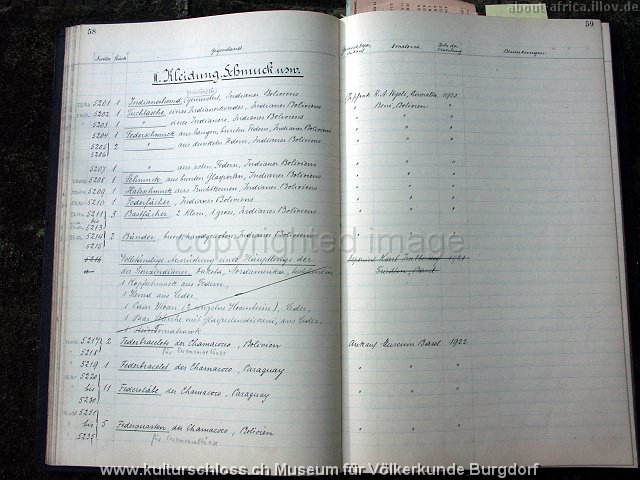 about-africa.illov.de
58
59
Nummer Stück Gegenstand
Donator etc. Jahr der Bemerkungen
II. Kleidung, Schmuck usw.
5201 1 Indianerhemd, Indianer Boliviens Geschenk R. A. 1922
5202 1 Tuchtasche eines Indianerkinder, Indianer Boliviens Beni, Bolivien "
5203 1 " eines Indianers, Indianer Boliviens " "
5204 1 Federschmuck aus langen bunten Federn, Indianer Boliviens " "
5205 2 " aus dunkeln Federn, Indianer Boliviens " "
5206
5207 1 " aus roten Federn, Indianer Boliviens " "
5208 1 Schmuck aus bunten Glasperlen, Indianer Boliviens " "
5209 1 Halsschmuck aus Fruchtkernen, Indianer Boliviens " "
5210 1 Federfächer, Indianer Boliviens " "
5211 3 Bastfächer 2 klein, 1 gross, Indianer Boliviens " "
bis
5213
5214 2 Bänder, bunt handgewoben, Indianer Boliviens " "
5215
copyrighted image
5216 Vollständige Ausrüstung eines Häuptlings der Depositum Karl 1921
a- der Siouxindianer, Dakota, Nordamerika,
1 Kopfschmuck aus Federn,
1 Hemd aus Leder
1 Paar Hosen (2 einzelne Hosenbeine), Leder,
1 Paar Schuhe mit Glasperlenstickerei, aus Leder.
1 Tomahawk
5217 2 Federbracelets der Chamacoco, Bolivien Ankauf Museum Basel 1922
5218 für Ceremonietänze
5219 1 Federbracelet der Chamacoco, Paraguay " "
5220
bis 11 Federstäbe der Chamacoco, Paraguay " "
5230
5231
bis 5 Federquasten der Chamacoco, Bolivien " "
5235 für Ceremonietänze
www.kulturschloss.ch Museum für Völkerkunde Burgdorf